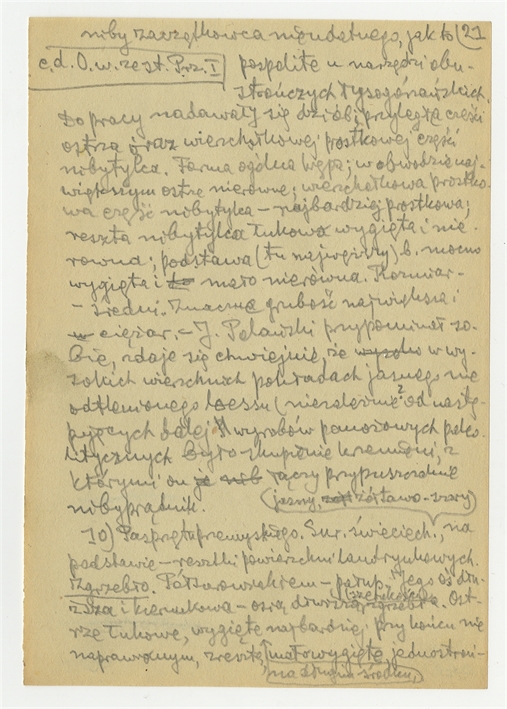 niby zaczątkowca nieudatnego, jak to (21
c.d. O.w.zest. P.rz. I
pospolite u narzędzi obu-
stończych łysogórzańskich.
Do pracy nadawały się dziób i przyległa część
ostrza oraz wierzchołkowej prostkowej część
nibytylca. Forma ogólna kępa; w obwodzie naj-
większym ostrze nierówne; wierzchołkowa prostko-
wa część nibytylca – najbardziej prostkowa;
reszta nibytylca łukowo wygięta i nie-
równa; podstawa (tu najwyższy) b. mocno
wygięta i mało nierówna. Rozmiar-
– średni. Znaczna grubość największa i
ciężar. – J. przypominał so-
bie, zdaje się chwiejnie, że w wy-
sokich wierzchnich pokładach jasnego nie
odtlenionego loessu (niezależnie? od nastę-
pujących dalej wyrobów panoziowych paleo-
litycznych było skupienie krzemieni, z
którymi on łączy przypuszczalnie
nibyprądnik. (jasny, żółtawo-szary)
10) Turon. Sur. świeciech., na
podstawie – resztki powierzchni
Zgrzebło. – Jego oś dłu-
ższa i kierunkowa – oszą zgrzebła. Ost-
rze łukowe, wygięte najbardziej przy końcu nie
naprawionym, małowygięte, jednostron-
na długim środku,